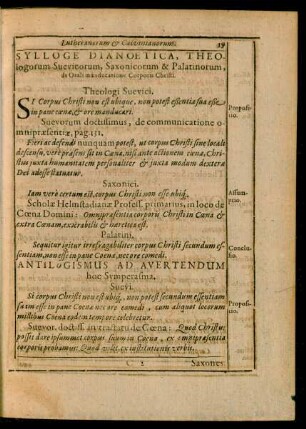 Lutheranorum & Calvinianorum. 19
SYLLOGE DIANOETICA, THEO-
logorum Suevicorum, Saxonicorum & Palatinorum,
de Orali manducatione Corporis Christi.
Theologi Suevici.
SI Corpus Christi non est ubique, non potest essentia sua esse
in pane cœnæ, & ore manducari.
Suevorum doctissimus, de communicatione o-
mnipræsentiæ, pag. 151.
Fieri ac defendi nunquam potest, ut corpus Christi sine locali
descensu, verè præsens sit in Cœna, nisi ante actionem cœnæ, Chri-
stus juxta humanitatem personaliter & juxta modum dextera
Dei adesse statuatur.
Propositio.
Saxonici.
Iam verò certum est, corpus Christi non esse ubiq.
Scholæ Helmstadianæ Profess. primarius, in loco de
Cœna Domini: Omnipræsentia corporis Christi in Cœna &
extra Cœnam, execrabilis & hæretica est.
Assumptio.
Palatini,
Sequitur igitur irrefragabiliter corpus Christi secundum es-
sentiam, non esse in pane Cœnæ, nec ore comedi.
Conclusio.
ANTILOGISMUS AD AVERTENDUM
hoc Symperasma.
Suevi.
Si corpus Christi non est ubiq, non potest secundum essentiam
suam esse in pane Cœnæ nec ore comedi, cum aliquot locorum
millibus Cœna eodem tempore celebretur.
Propositio.
Suevor. doctiss. in tractatu de Cœna: Quod Christus
possit dare ipsummet corpus suum in Cœna, ex omnipræsentia
corporis probamus: Quod velit, ex institutionis verbis.
C 2 Saxones